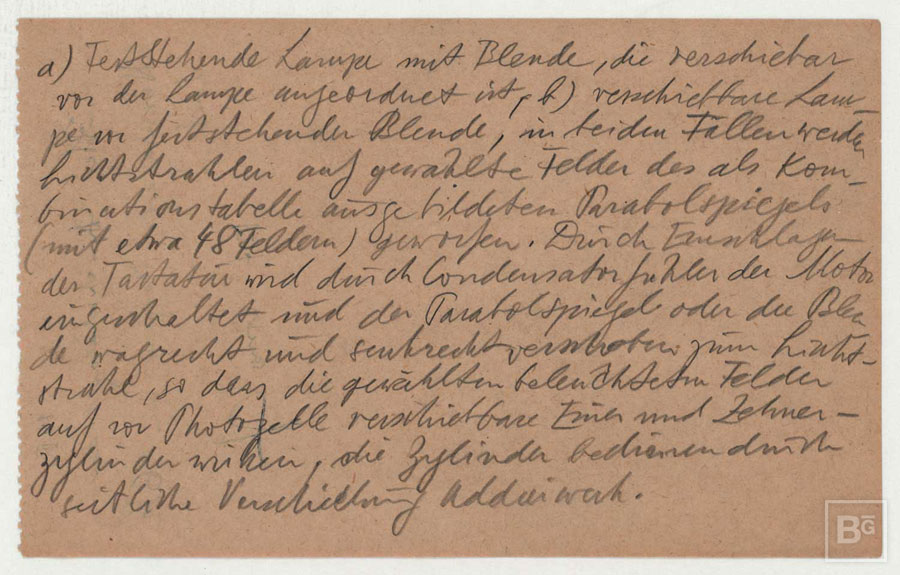 a) Feststehende Lampe mit Blende, die verschiebbar
vor der Lampe angeordnet ist, b) verschiebbare Lam-
pe vor feststehender Blende, in beiden Fällen werden
Lichtstrahlen auf gewählte Felder des als Kom-
binationstabelle ausgebildeten Parabolspiegels
(mit etwa 48 Feldern) geworfen. Durch Einschlagen
der Tastatur wird durch Condensatorfühler der Motor
eingeschaltet und der Parabolspiegel oder die Blen
de wagrecht und senkrecht verschoben zum Licht-
strahl, so dass die gewählten beleuchteten Felder
auf vor Photozelle verschiebbare Einer und Zehner-
zylinder wirken, die Zylinder bedienen durch
seitliche Verschiebung Addierwerk.
BG